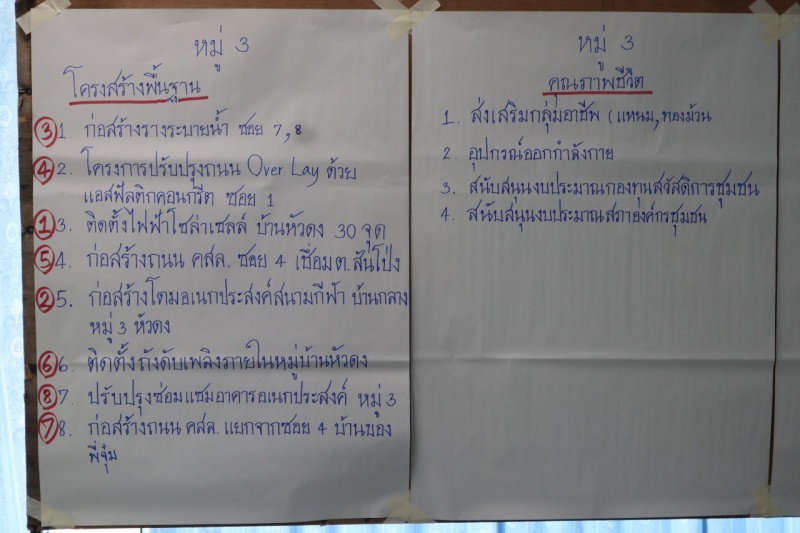 หมู่ 3
โครงสร้างพื้นฐาน
③ 1. ก่อสร้างรางระบายน้ำ ซอย 7, 8
④ 2. โครงการปรับปรุงถนน Over Lay ด้วย
แอสฟัลติกคอนกรีต ซอย 1
① 3. ติดตั้งไฟฟ้าโซล่าเซลล์ บ้านหัวดง 30 จุด
⑤ 4. ก่อสร้างถนน คสล. ซอย 4 เชื่อม ต. สันโป่ง
② 5. ก่อสร้างโดมอเนกประสงค์สนามกีฬา บ้านกลาง
หมู่ 3 หัวดง
⑥ 6. ติดตั้งถังดับเพลิงภายในหมู่บ้านหัวดง
⑧ 7. ปรับปรุงซ่อมแซมอาคารอเนกประสงค์ หมู่ 3
⑦ 8. ก่อสร้างถนน คสล. แยกจากซอย 4 บ้านของ
พี่จุ๋ม
หมู่ 3
คุณภาพชีวิต
1. ส่งเสริมกลุ่มอาชีพ (แหนม, ทองม้วน
2. อุปกรณ์ออกกำลังกาย
3. สนับสนุนงบประมาณกองทุนสวัสดิการชุมชน
4. สนับสนุนงบประมาณสภาองค์กรชุมชน